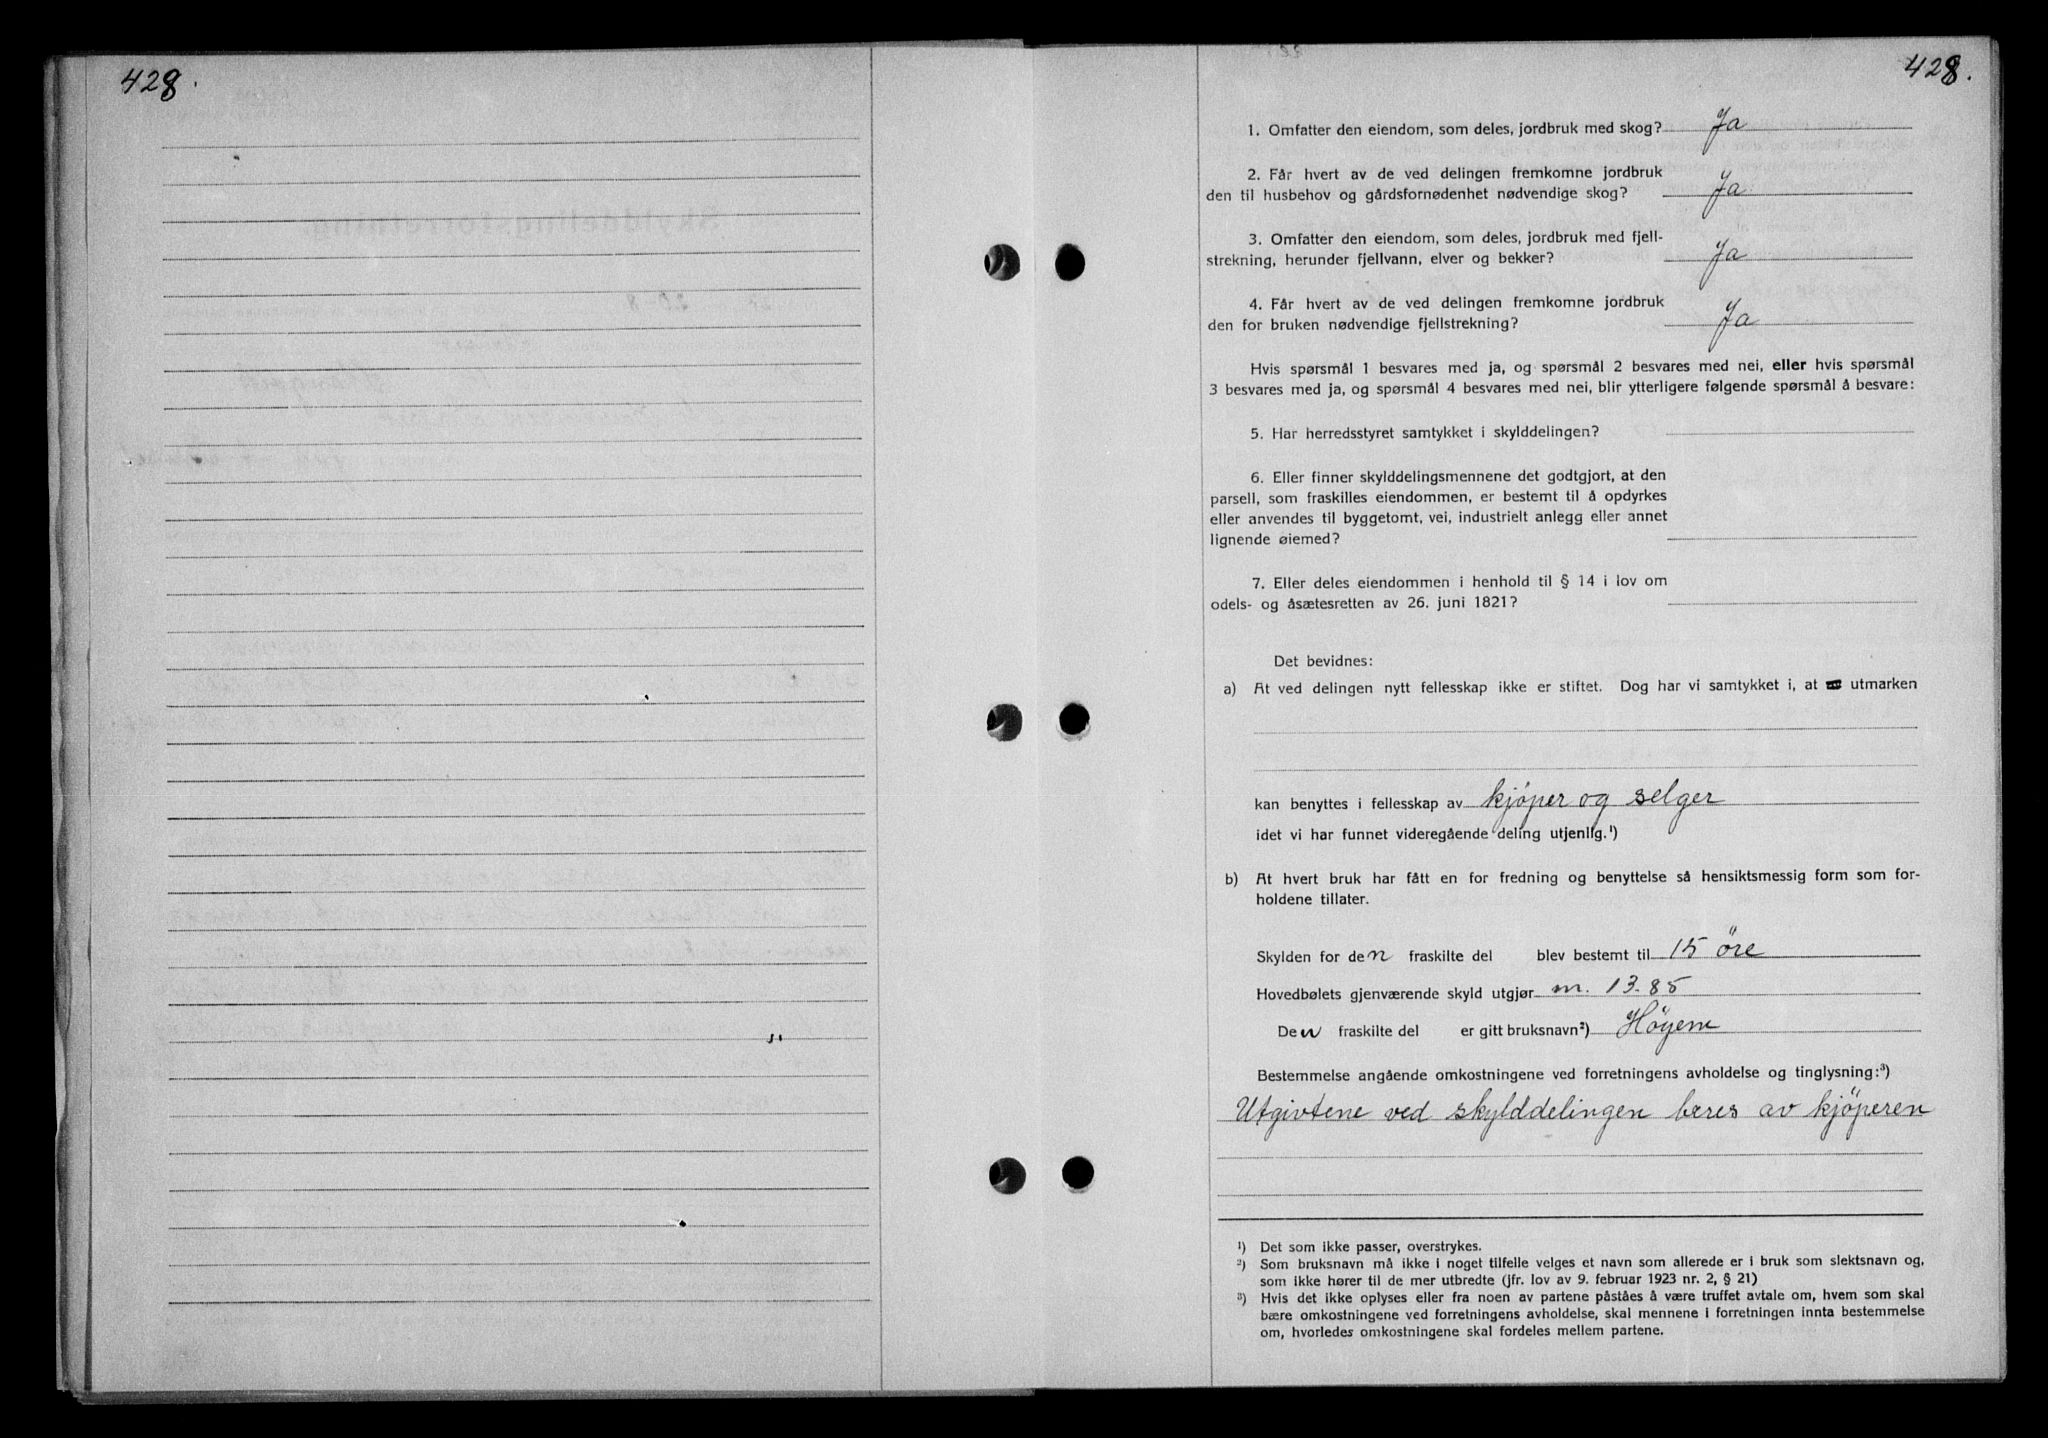 428.
428.
1. Omfatter den eiendom, som deles, jordbruk med skog? Ja
2. Får hvert av de ved delingen fremkomne jordbruk
den til husbehov og gårdsfornødenhet nødvendige skog? Ja
3. Omfatter den eiendom, som deles, jordbruk med fjell-
strekning, herunder fjellvann, elver og bekker? Ja
4. Får hvert av de ved delingen fremkomne jordbruk
den for bruken nødvendige fjellstrekning? Ja
Hvis spørsmål 1 besvares med ja, og spørsmål 2 besvares med nei, eller hvis spørsmål
3 besvares med ja, og spørsmål 4 besvares med nei, blir ytterligere følgende spørsmål å besvare:
5. Har herredsstyret samtykket i skylddelingen?
6. Eller finner skylddelingsmennene det godtgjort, at den
parsell, som fraskilles eiendommen, er bestemt til å opdyrkes
eller anvendes til byggetomt, vei, industrielt anlegg eller annet
lignende øiemed?
7. Eller deles eiendommen i henhold til § 14 i lov om
odels- og åsætesretten av 26. juni 1821?
Det bevidnes:
a) At ved delingen nytt fellesskap ikke er stiftet. Dog har vi samtykket i, at utmarken
kan benyttes i fellesskap av kjöper og selger
idet vi har funnet videregående deling utjenlig.¹)
b) At hvert bruk har fått en for fredning og benyttelse så hensiktsmessig form som for-
holdene tillater.
Skylden for den fraskilte del blev bestemt til 15 öre
Hovedbølets gjenværende skyld utgjør m. 13.85
Den fraskilte del er gitt bruksnavn²) Höyem
Bestemmelse angående omkostningene ved forretningens avholdelse og tinglysning:³)
Utgivtene ved skylddelingen beres av kjöperen
¹) Det som ikke passer, overstrykes.
²) Som bruksnavn må ikke i noget tilfelle velges et navn som allerede er i bruk som slektsnavn og,
som ikke hører til de mer utbredte (jfr. lov av 9. februar 1923 nr. 2, § 21)
³) Hvis det ikke oplyses eller fra noen av partene påståes å være truffet avtale om, hvem som skal
bære omkostningene ved forretningens avholdelse, skal mennene i forretningen innta bestemmelse
om, hvorledes omkostningene skal fordeles mellem partene.